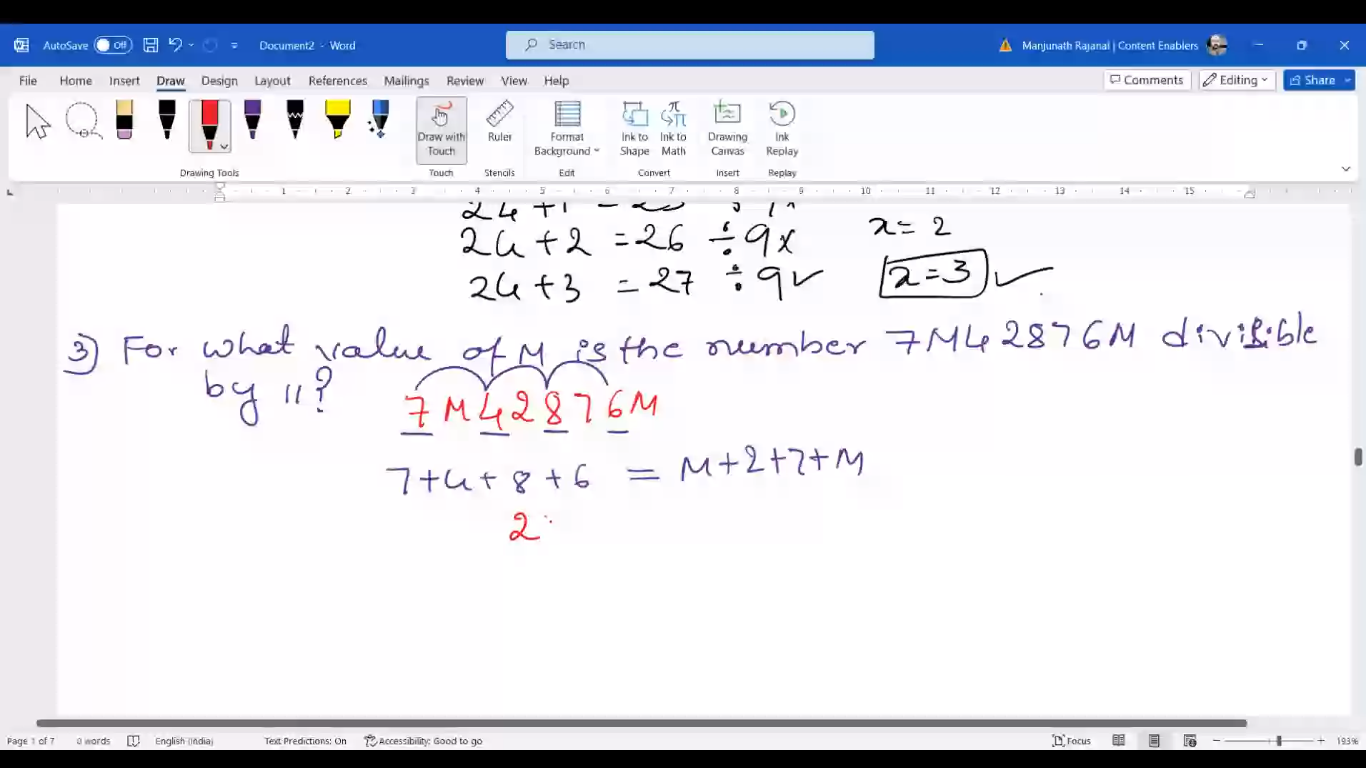 AutoSave Off Document2 - Word Search Manjunath Rajanal | Content Enablers
File Home Insert Draw Design Layout References Mailings Review View Help Comments Editing Share
Draw with Touch Ruler Format Background Ink to Shape Ink to Math Drawing Canvas Ink Replay
Drawing Tools Touch Stencils Edit Convert Insert Replay
1 2 3 4 5 6 7 8 9 10 11 12 13 14 15
24+2 = 26 ÷9x x = 2
24+3 = 27 ÷9✓ x=3 ✓
3) For what value of M is the number 7M42876M divisible
by 11?
7M42876M
7+4+8+6 = M+2+7+M
2
Page 1 of 7 0 words English (India) Text Predictions: On Accessibility: Good to go Focus 193%